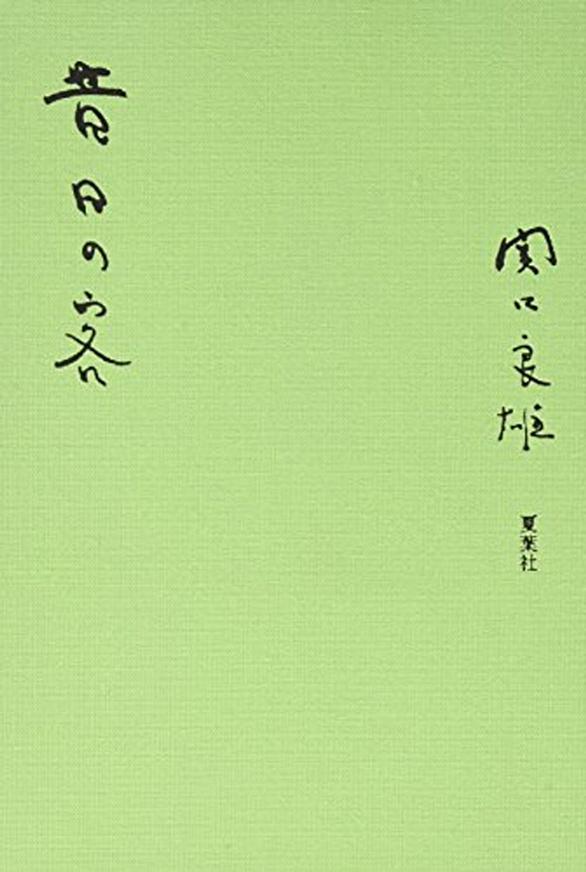 関口良雄
夏葉社
昔日の客